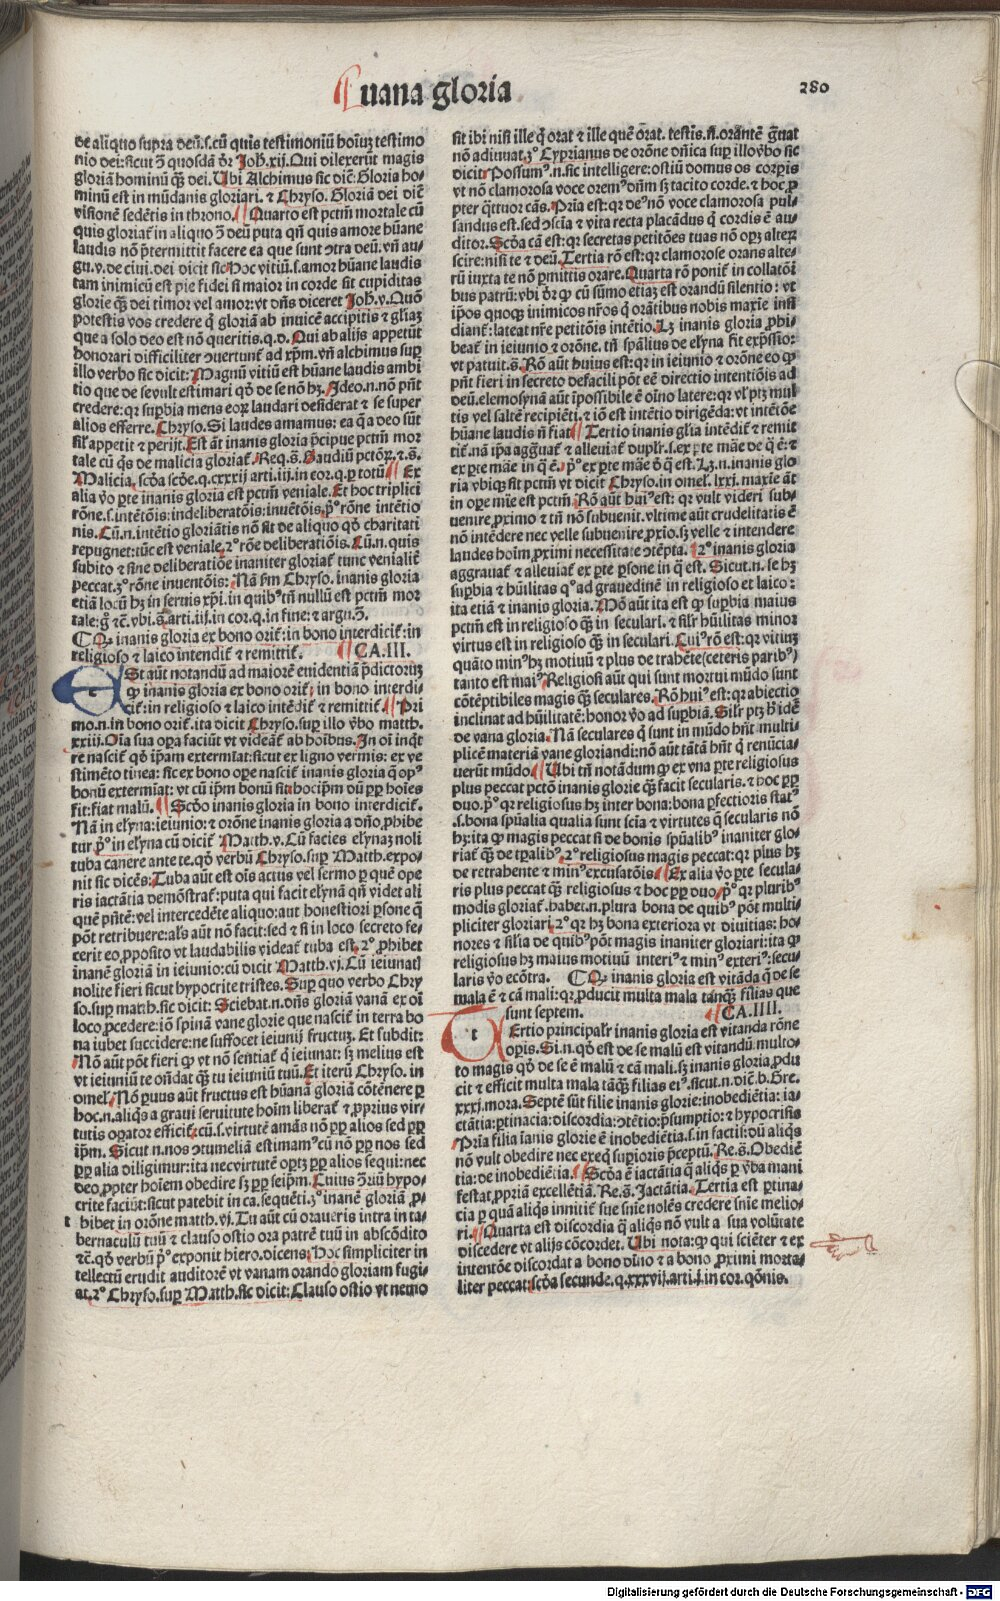 uana gloria
280
de aliquo supra deū.s.cū quis testimoniū hoiuꝫ testimo
nio dei:sicut ↄ̄ quosdā dr̄ Joh̄.xij.Qui dilexerūt magis
gloriā hominū qꝫ̄ dei. Ubi Alchimus sic dic̄: Gloria ho-
minū est in mūdanis gloriari. ⁊ Chryso. Gloriā dei dic̄
visionē sedētis in throno. Quarto est pctm̄ mortale cū
quis gloriat̄ in aliquo ↄ̄ deū puta qn̄ quis amore hūane
laudis nō p̄termittit facere ea que sunt ↄtra deū. vn̄ au-
gu.v.de ciui.dei dicit sic Hoc vitiū.s.amor hūane laudis
tam inimicū est pie fidei si maior in corde sit cupiditas
glorie qꝫ̄ dei timor vel amor: vt dn̄s diceret Joh̄.v.Quō
potestis vos credere q̄ gloriā ab inuicē accipitis ⁊ gl̄iaꝫ
que a solo deo est nō queritis.q.d. Qui ab alijs appetūt
honorari difficiliter ↄuertunt̄ ad xp̄m. vn̄ alchimus sup̄
illo verbo sic dicit: Magnū vitiū est hūane laudis ambi
tio que de se vult estimari qd̓ de se nō hꝫ. Ideo.n.nō pn̄t
credere: qꝛ sup̄bia mens eoꝝ laudari desiderat ⁊ se super
alios efferre. Chryso. Si laudes amamus: ea q̄ a deo sūt
sil̄ appetit ⁊ perijt. Est āt inanis gloria p̄cipue pctm̄ mor
tale cū q̄s de malicia gloriat̄. Req.s̄. Gaudiū pctōꝝ. ⁊.s̄.
Malicia. scd̓a scd̓e.q.cxxxij arti.iij.in cor.q.ꝑ totū Ex
alia ꝟo ꝑte inanis gloria est pctm̄ veniale. Et hoc triplici
rōne.s.intētōis: indeliberatōis: inuētōis. pº rōne intētio
nis. Cū.n.intētio gloriātis nō sit de aliquo qd̓ charitati
repugnet: tūc est veniale. 2º rōe deliberatiōis. Cū.n.quis
subito ⁊ sine deliberatiōe inaniter gloriat̄ tunc venialit̄
peccat. 3º rōne inuentōis: Nā ẜm Chryso. inanis gloria
etiā locū hꝫ in seruis xp̄i. in quibꝰ tn̄ nullū est pctm̄ mor
tale: ḡ ⁊c̄. vbi.s̄.arti.iij.in cor.q.in fine: ⁊ argu.3.
Ꝙ inanis gloria ex bono orit̄: in bono interdicit̄: in
religioso ⁊ laico intendit̄ ⁊ remittit̄. CA.III.
ESt aūt notandū ad maiorē euidentiā p̄dictoruꝫ
ꝙ inanis gloria ex bono orit̄; in bono interdi-
cit̄: in religioso ⁊ laico intēdit̄ ⁊ remittit̄ Pri
mo.n.in bono orit̄. ita dicit Chryso. sup̄ illo ꝟbo matth.
xxiij. Oīa sua oꝑa faciūt vt videāt̄ ab hoībus. In oī inqt̄
re nascit̄ qd̓ ip̄am extermīat: sicut ex ligno vermis: ex ve
stimēto tinea: sic ex bono oꝑe nascit̄ inanis gloria q̄ opꝰ
bonū exterminat: vt cū ip̄m bonū sit: hoc ip̄m dū ꝓꝑ hoīes
fit: fiat malū. Scd̓o inanis gloria in bono interdicit̄.
Nā in elyna: ieiunio: ⁊ orōne inanis gloria a dn̄o ꝓhibe
tur. pº in elyna cū dicit̄ Matth.v. Cū facies elynaꝫ noli
tuba canere ante te. qd̓ verbū Chryso. sup̄ Matth. expo-
nit sic dicēs: Tuba aūt est oīs actus vel sermo ꝑ quē ope
ris iactātia demōstrat̄: puta qui facit elynā qn̄ videt ali
quē pn̄tē: vel intercedēte aliquo: aut honestiori ꝑsone q̄
pōt retribuere: als̄ aūt nō facit: sed ⁊ si in loco secreto fe-
cerit eo ꝓposito vt laudabilis videat̄ tuba est. 2º ꝓhibet
inanē gloriā in ieiunio: cū dicit Matth.vj. Cū ieiunat̄
nolite fieri sicut hypocrite tristes. Sup̄ quo verbo Chry
so. sup̄ matth. sic dicit: Sciebat.n.dn̄s gloriā vanā ex oī
loco ꝓcedere: iō spinā vane glorie que nascit̄ in terra bo
na iubet succidere: ne suffocet ieiunij fructuꝫ. Et subdit:
Nō aūt pōt fieri ꝙ vt nō sentiat̄ q̄ ieiunat: sꝫ melius est
vt ieiuniū te on̄dat qꝫ̄ tu ieiuniū tuū. Et iterū Chryso. in
omel. Nō ꝑuus aūt fructus est hūanā gloriā cōtēnere ꝑ
hoc.n.aliq̄s a graui seruitute hoīm liberat̄ ⁊ ꝓprius vir-
tutis oꝑator efficit̄: cū.s.virtutē amās nō ꝓꝑ alios sed ꝓꝑ
ip̄m. Sicut.n.nos ↄtumeliā estimamꝰ cū nō ꝓꝑ nos sed
ꝓꝑ alia diligimur: ita nec virtutē oꝑtꝫ ꝓꝑ alios sequi: nec
deo ꝓpter hoīem obedire sꝫ ꝓꝑ seip̄m. Cuius ↄ̄riū hypo-
crite faciūt: sicut patebit in ca.sequēti. 3º inanē gloriā ꝓ-
hibet in orōne matth.vj. Tu aūt cū oraueris intra in ta-
bernaculū tuū ⁊ clauso ostio ora patrē tuū in abscōdito
⁊c̄. qd̓ verbū pº exponit hiero. dicens: Hoc simpliciter in
tellectū erudit auditorē vt vanam orando gloriam fugi-
at. 2º Chryso. sup̄ Matth. sic dicit: Clauso ostio vt nemo
sit ibi nisi ille q̄ orat ⁊ ille quē orat. testis.n̄.orātē ḡuat
nō adiuuat. 3º Cyprianus de orōne dn̄ica sup̄ illo ꝟbo sic
dicit Possum'.n.sic intelligere: ostiū domus os corpis
vt nō clamorosa voce orem' dn̄m sꝫ tacito corde. ⁊ hoc ꝓ
pter q̄ttuor cās. Pria est: qꝛ de' nō voce clamorosa pul-
sandus est. sed ↄscīa ⁊ vita recta placādus q̄ cordis ē au-
ditor. Scd̓a cā est: qꝛ secretas petitōes tuas nō opꝫ alteꝝ
scire: nisi te ⁊ deū. Tertia rō est: qꝛ clamorose orans alte-
rū iuxta te nō ꝑmittis orare. Quarta rō ponit̄ in collatōī
bus patrū: vbi dr̄ ꝙ cū sūmo etiaꝫ est orandū silentio: vt
ip̄os quoqꝫ inimicos nr̄os q̄ orātibus nobis maxie insi
diant̄: lateat nr̄e petitōis intētio. Lꝫ inanis gloria ꝓhi-
beat̄ in ieiunio ⁊ orōne. tn̄ spālius de elyna fit exp̄ssio:
vt patuit.s̄. Rō aūt huius est: qꝛ in ieiunio ⁊ orōne eo ꝙ
pn̄t fieri in secreto defacili pōt eē directio intentiōis ad
deū. elemosynā aūt īpossibile ē oīno latere: qꝛ vl̓ ptꝫ mul
tis vel saltē recipiēti. ⁊ iō est intētio dirigēda: vt intētiōe
hūane laudis n̄ fiat Tertio inanis gl̄ia intēdit̄ ⁊ remit
tit̄. nā ip̄a aggᷓuat̄ ⁊ alleuiat̄ duplr̄.s.ex ꝑte māe de q̄ ē: ⁊
ex ꝑte māe in q̄ ē. pº ex ꝑte māe d̓ q̄ est. Lꝫ.n.inanis glo
ria vbiqꝫ sit pctm̄ vt dicit Chryso. in omel.lxxj. maxie āt
in oꝑe mīe est pctm̄. Rō aūt hui' est: qꝛ vult videri sub-
uenire ꝓximo ⁊ tn̄ nō subuenit. vltime aūt crudelitatis ē
nō intēdere nec velle subuenire ꝓxīo. sꝫ velle ⁊ intendere
laudes hoīm ꝓximi necessitate ↄtēpta. 2º inanis gloria
aggrauat̄ ⁊ alleuiat̄ ex ꝑte ꝑsone in q̄ est. Sicut.n.se hꝫ
sup̄bia ⁊ hūilitas qº ad grauedinē in religioso et laico:
ita etiā ⁊ inanis gloria. Mō aūt ita est ꝙ sup̄bia maius
pctm̄ est in religioso qꝫ̄ in seculari. ⁊ silr̄ hūilitas minor
virtus est in religioso qꝫ̄ in seculari. Cui' rō est: qꝛ vitiuꝫ
quāto min' hꝫ motiuū ⁊ plus de trahēte (ceteris paribꝰ)
tanto est mai'. Religiosi aūt qui sunt mortui mūdo sunt
cōtēptibiles magis qꝫ̄ seculares. Rō hui' est: qꝛ abiectio
inclinat ad hūilitatē: honor ꝟo ad sup̄biā. Silr̄ ptꝫ h̓ idē
de vana gloria. Nā seculares q̄ sunt in mūdo hn̄t multi-
plicē materiā vane gloriandi: nō aūt tātā hn̄t q̄ renūcia-
uerūt mūdo. Ubi tn̄ notādum ꝙ ex vna ꝑte religiosus
plus peccat pctō inanis glorie qꝫ̄ facit secularis. ⁊ hoc ꝓꝑ
duo. pº qꝛ religiosus hꝫ inter bona: bona ꝑfectioris stat'
.s.bona spūalia qualia sunt scīa ⁊ virtutes q̄ secularis nō
hꝫ: ita ꝙ magis peccat si de bonis spūalibꝰ inaniter glo-
riat̄ qꝫ̄ de tꝑalibꝰ. 2º religiosus magis peccat: qꝛ plus hꝫ
de retrahente ⁊ min' excusatōis. Ex alia ꝟo ꝑte secula-
ris plus peccat qꝫ̄ religiosus ⁊ hoc ꝓꝑ duo. pº qꝛ pluribꝰ
modis gloriat̄. habet.n.plura bona de quibꝰ pōt multi-
pliciter gloriari. 2º qꝛ hꝫ bona exteriora vt diuitias: ho-
nores ⁊ sil̄ia de quibꝰ pōt magis inaniter gloriari: ita ꝙ
religiosus hꝫ maius motiuū interi' ⁊ min' exteri': secu-
laris ꝟo ecōtra. Ꝙ inanis gloria est vitāda q̄ de se
mala ē ⁊ cā mali: qꝛ ꝓducit multa mala tanqꝫ̄ filias que
sunt septem. CA.IIII.
TErtio principalr̄ inanis gloria est vitanda rōne
opis. Si.n.qd̓ est de se malū est vitandū multo-
to magis qd̓ de se ē malū ⁊ cā mali. sꝫ inanis gloria ꝓdu
cit ⁊ efficit multa mala tāqꝫ̄ filias et'. sicut.n.dic̄.b.Gre.
xxxj.mora. Septē sūt filie inanis glorie: inobediētia: ia-
ctātia: ꝑtinacia: discordia: ↄtētio: p̄sumptio: ⁊ hypocrisis
Pria filia īanis glorie ē inobediētia.s.in factis: dū aliq̄s
nō vult obedire nec exeq̄ supioris p̄ceptū. Re.s̄. Obediē
tia: de inobediētia. Scd̓a ē iactātia q̄ aliq̄s ꝑ ꝟba mani
festat ꝓpriā excellētiā. Re.s̄. Jactātia. Tertia est ꝑtina-
cia ꝑ quā aliq̄s innitit̄ sue sn̄ie nolēs credere sn̄ie melio-
ri. Quarta est discordia q̄ aliq̄s nō vult a sua volūtate
discedere vt alijs cōcordet. Ubi nota: ꝙ qui sciēter ⁊ ex
intentōe discordat a bono diuīo ⁊ a bono ꝓximi morta-
liter peccat: scd̓a secunde.q.xxxvij.arti.j.in cor.qōnis.
Digitalisierung gefördert durch die Deutsche Forschungsgemeinschaft - DFG